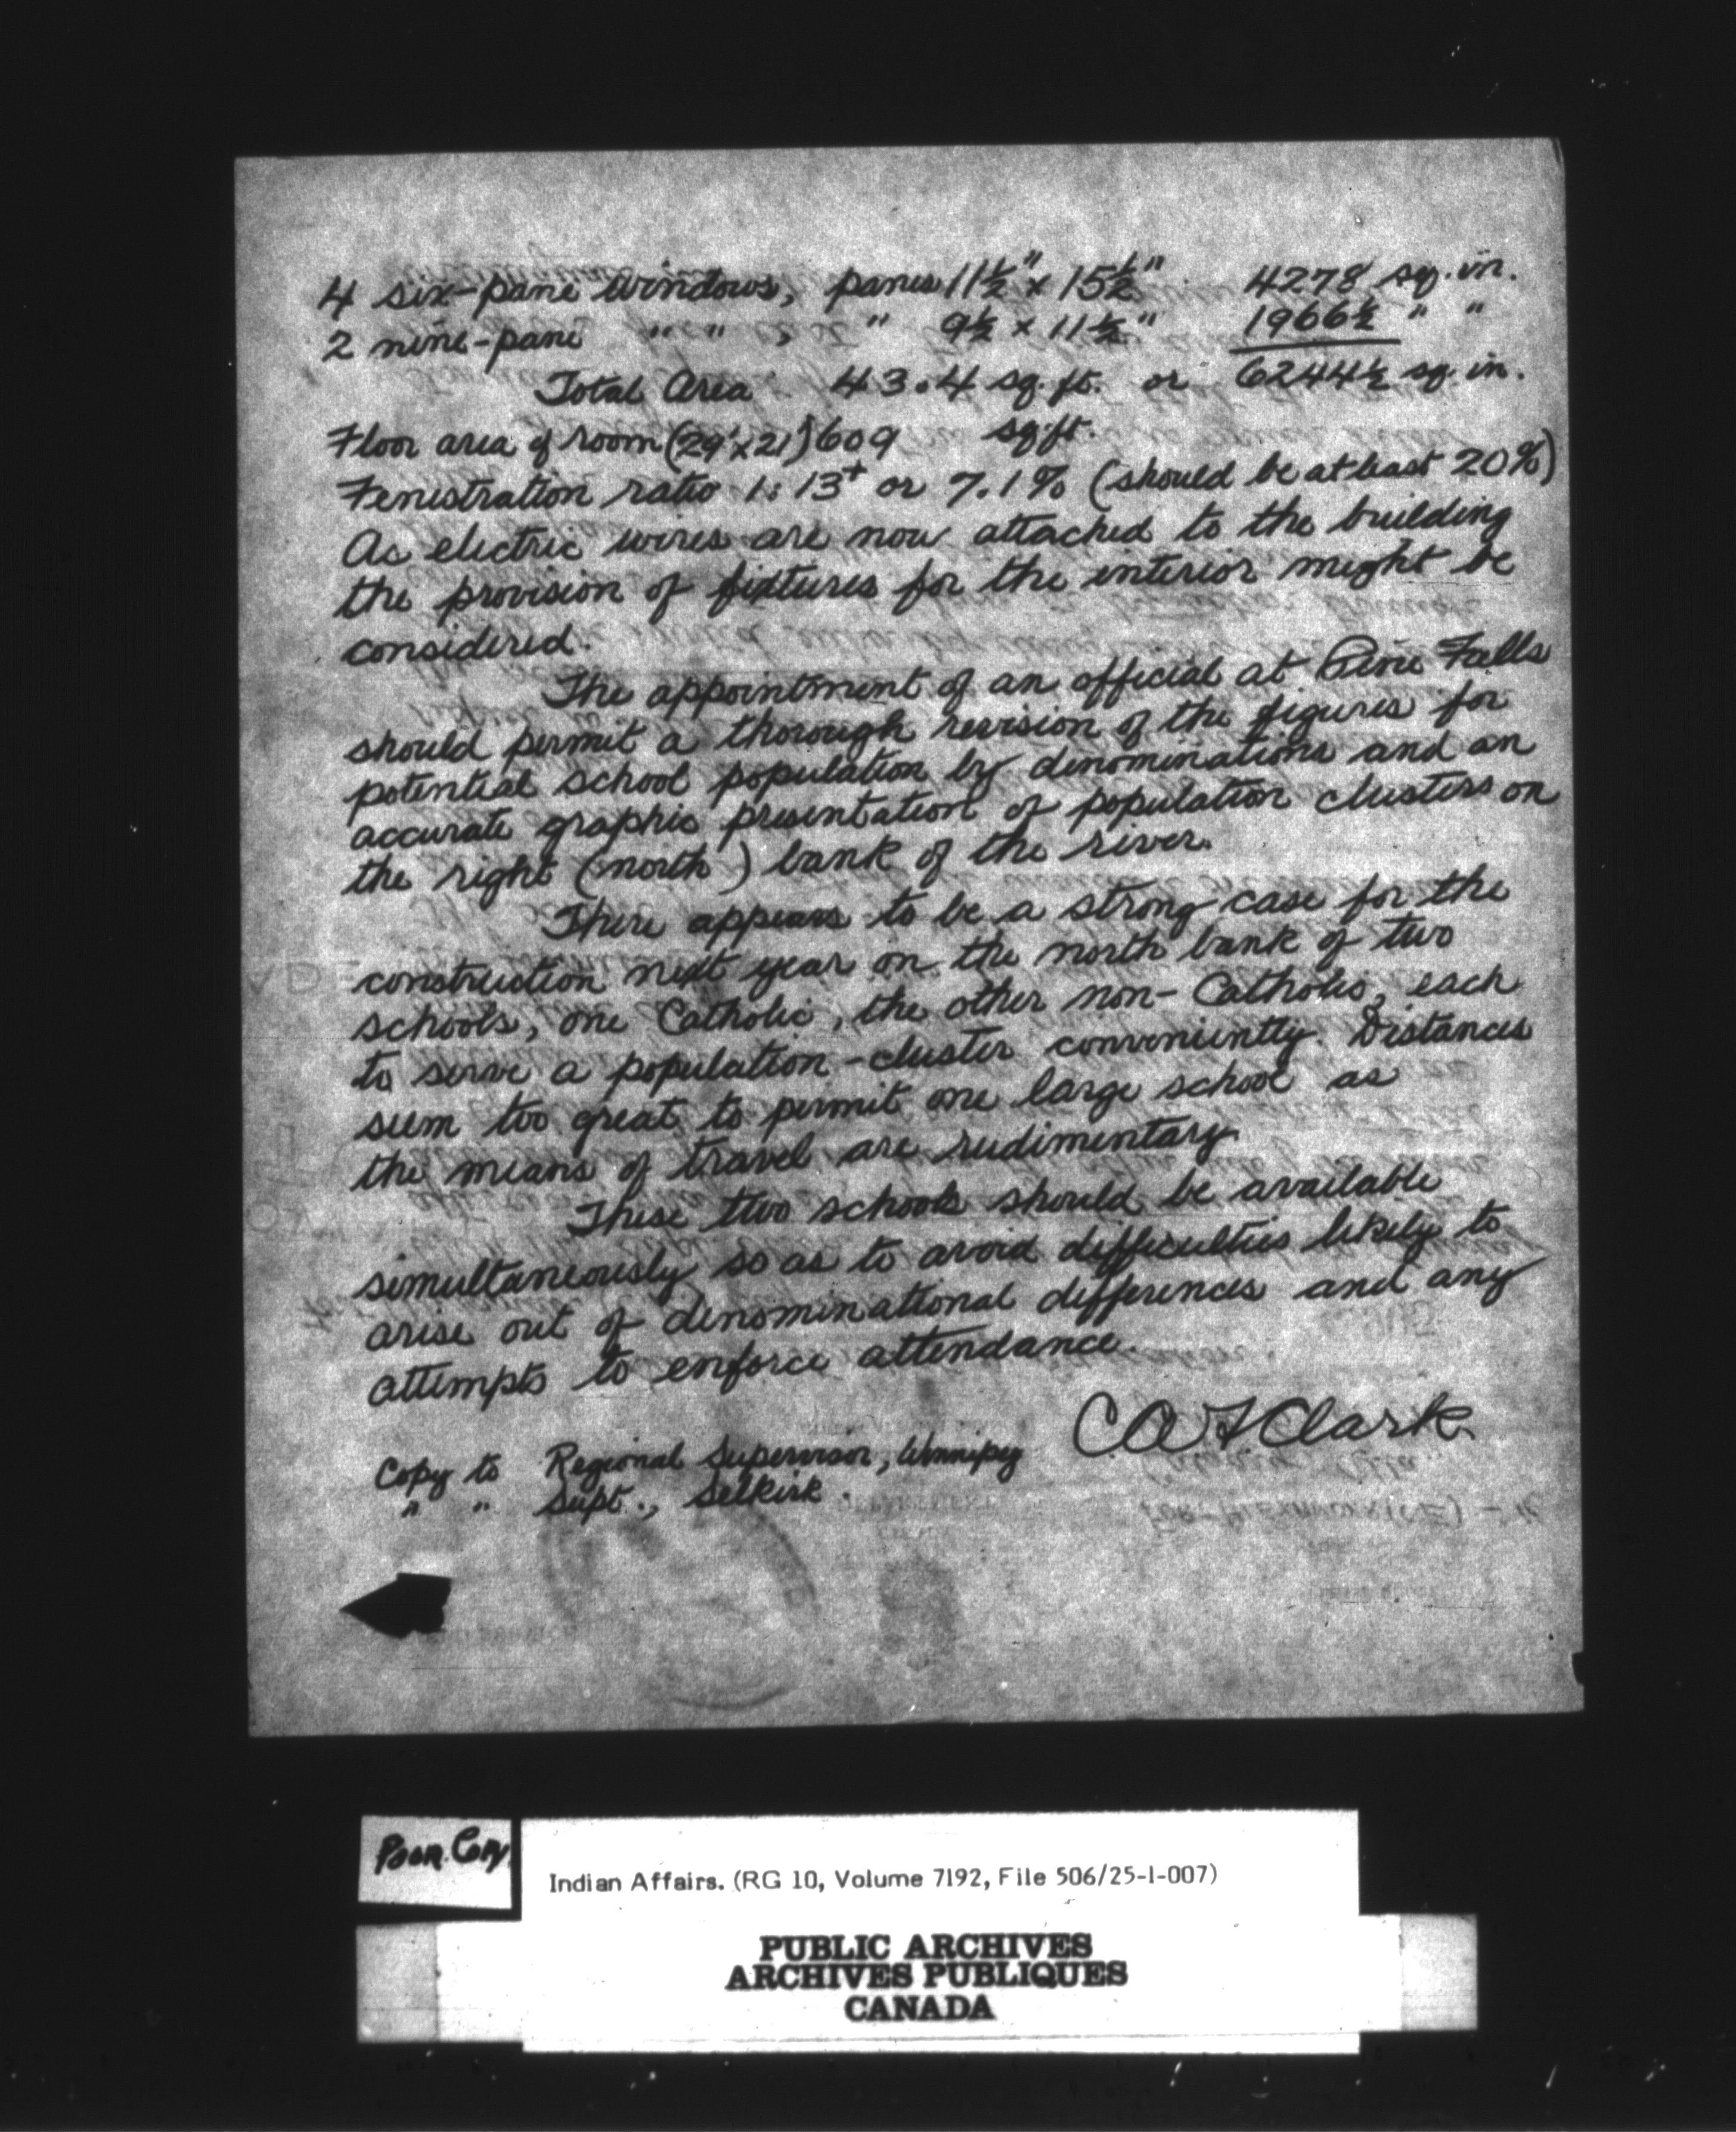 4 six-pane windows, panes 11½" x 15½" 4278 sq. in.
2 nine-pane " " , " 9½ x 11½" 1966½ " "
Total Area 43.4 sq. ft. or 6244½ sq. in.
Floor area of room (29'x21') 609 sq.ft.
Fenestration ratio 1:13+ or 7.1% (should be at least 20%)
As electric wires are now attached to the building
the provision of fixtures for the interior might be
considered.
The appointment of an official at Pine Falls
should permit a thorough revision of the figures for
potential school population by denominations and an
accurate graphic presentation of population clusters on
the right (north) bank of the river.
There appears to be a strong case for the
construction next year on the north bank of two
schools, one Catholic, the other non-Catholic, each
to serve a population-cluster conveniently. Distances
seem too great to permit one large school as
the means of travel are rudimentary.
These two schools should be available
simultaneously so as to avoid difficulties likely to
arise out of denominational differences and any
attempts to enforce attendance.
C A F Clark
Copy to Regional Supervisor, Winnipeg
" " Supt., Selkirk.
Poor Copy
Indian Affairs. (RG 10, Volume 7192, File 506/25-1-007)
PUBLIC ARCHIVES
ARCHIVES PUBLIQUES
CANADA